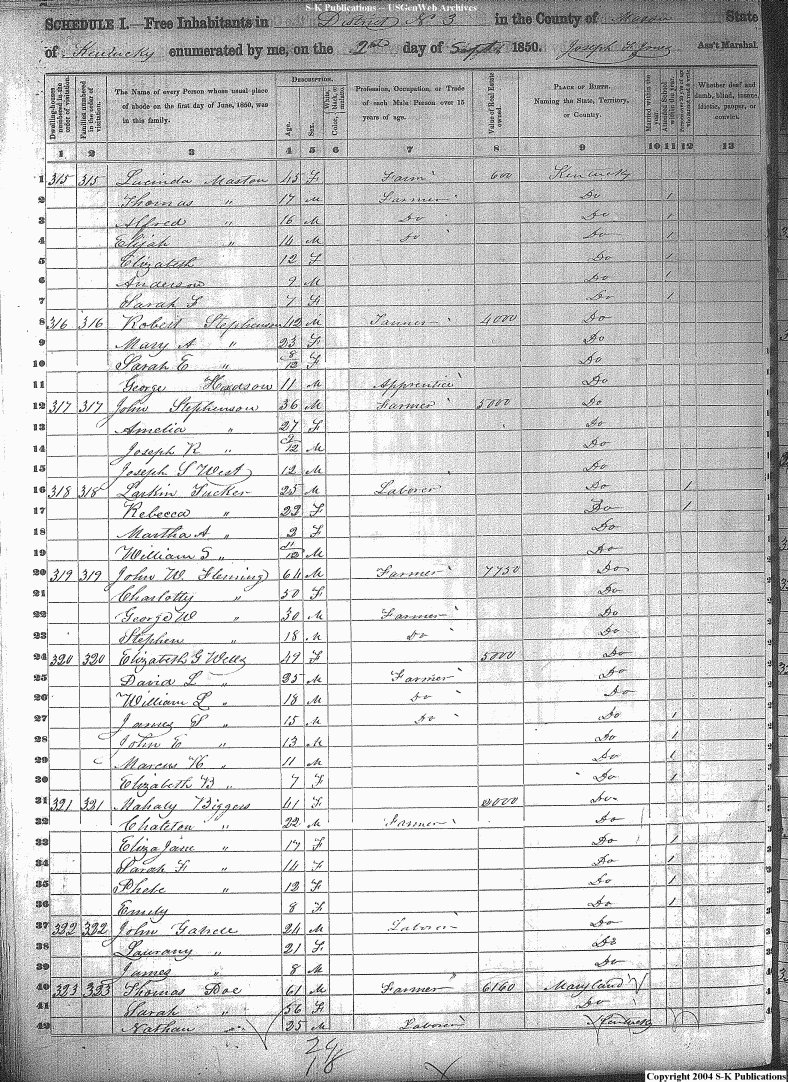 S-K Publications – USGenWeb Archives
SCHEDULE I.—Free Inhabitants in District No 3 in the County of Mason State
of Kentucky enumerated by me, on the 2nd day of Septr 1850. Joseph F. Jones Ass't Marshal.
Dwelling-houses numbered in the order of visitation.
Families numbered in the order of visitation.
The Name of every Person whose usual place of abode on the first day of June, 1850, was in this family.
Description.
Age.
Sex.
Color, White, black, or mulatto.
Profession, Occupation, or Trade of each Male Person over 15 years of age.
Value of Real Estate owned.
Place of Birth. Naming the State, Territory, or Country.
Married within the year.
Attended School within the year.
Persons over 20 y'rs of age who cannot read & write.
Whether deaf and dumb, blind, insane, idiotic, pauper, or convict.
1 2 3 4 5 6 7 8 9 10 11 12 13
1 315 315 Lucinda Maston 45 F Farm 600 Kentucky
2 Thomas " 17 M Farmer Do 1
3 Alfred " 16 M Do Do 1
4 Elijah " 14 M Do Do 1
5 Elizabeth 12 F Do 1
6 Anderson 9 M Do 1
7 Sarah F 7 F Do 1
8 316 316 Robert Stephenson 42 M Tanner 4000 Do
9 Mary A " 23 F Do
10 Sarah E " 8/12 F Do
11 George Hudson 11 M Apprentice Do
12 317 317 John Stephenson 36 M Farmer 5000 Do
13 Amelia " 27 F Do
14 Joseph R " 9/12 M Do
15 Joseph S West 12 M Do
16 318 318 Larkin Tucker 25 M Laborer Do 1
17 Rebecca " 22 F Do 1
18 Martha A " 2 F Do
19 William S " 11/12 M Do
20 319 319 John W. Fleming 64 M Farmer 7750 Do
21 Charlotty " 50 F Do
22 George W " 30 M Farmer Do
23 Stephen " 18 M Do Do
24 320 320 Elizabeth G Wells 49 F 5000 Do
25 David L " 25 M Farmer Do
26 William L " 18 M Do Do
27 James P " 15 M Do Do 1
28 John E " 13 M Do 1
29 Marcus H " 11 M Do 1
30 Elizabeth B " 7 F Do 1
31 321 321 Mahaly Biggers 41 F Do
32 Charleton " 22 M Farmer Do
33 Eliza Jane " 17 F Do 1
34 Sarah F " 14 F Do 1
35 Phebe " 12 F Do 1
36 Emily 8 F Do 1
37 322 322 John 24 M Laborer Do
38 Laurany " 21 F Do
39 James " 8 M Do
40 323 323 Thomas Doe 61 M Farmer 6160 Maryland
41 Sarah " 56 F Do
42 Nathan " 25 M Laborer Kentucky
24
18
Copyright 2004 S-K Publications